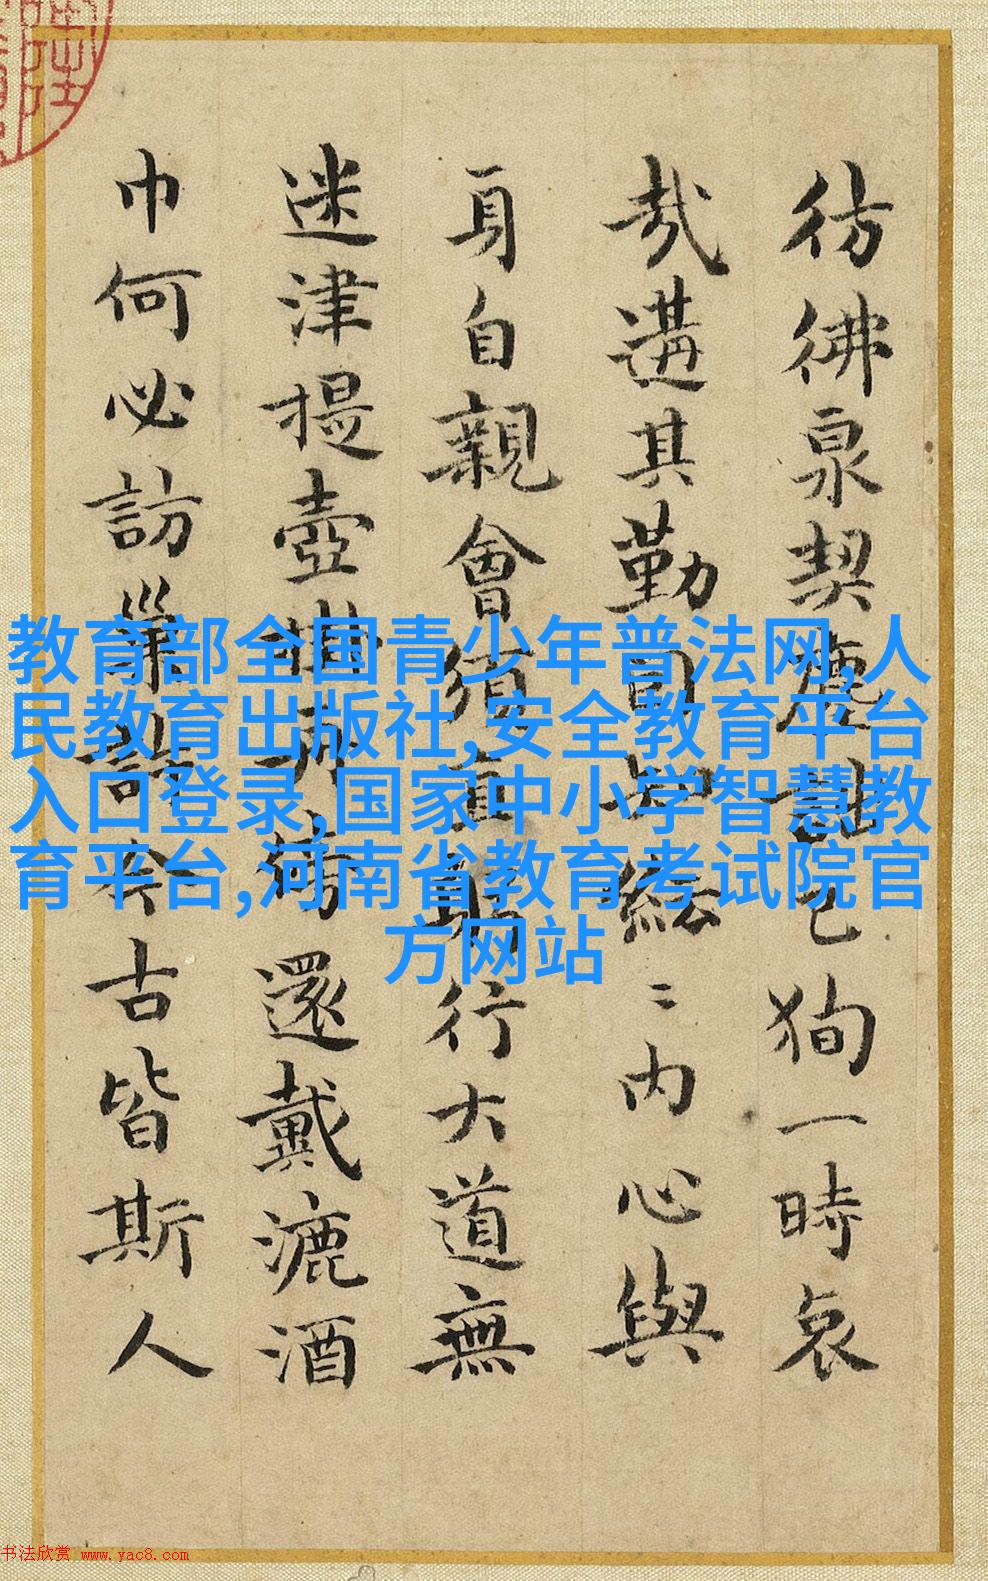 彷彿泉契塵已狥一時哀
哉遘其勤紜〻内心與
身自親會須直躬行大道無
迷津提壺還戴漉酒
巾何必訪巢許今古皆斯人
教育部全国青少年普法网,人
民教育出版社,安全教育平台
入口登录,国家中小学智慧教
育平台,河南省教育考试院官
方网站
书法欣赏 www.yac8.com